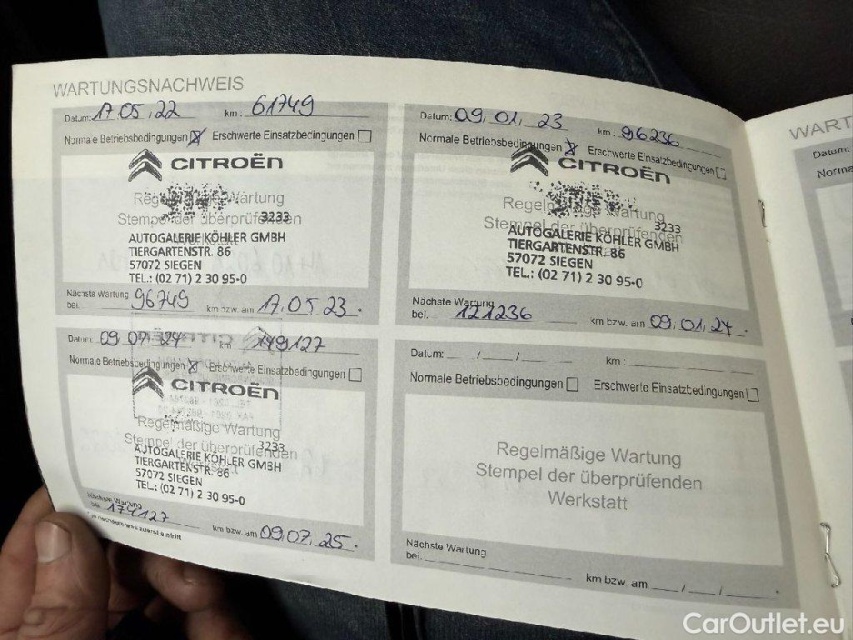 WARTUNGSNACHWEIS
Datum: 17.05.22 km: 61749
Normale Betriebsbedingungen Erschwerte Einsatzbedingungen
CITROËN
Regelmäßige Wartung
Stempel der überprüfenden
3233
AUTOGALERIE KÖHLER GMBH
TIERGARTENSTR. 86
57072 SIEGEN
TEL.: (02 71) 2 30 95-0
Nächste Wartung
bei. 96749 km bzw. am 17.05 23.
Datum: 09.01.23 km: 96236
Normale Betriebsbedingungen Erschwerte Einsatzbedingungen
CITROËN
Regelmäßige Wartung
Stempel der überprüfenden
3233
AUTOGALERIE KÖHLER GMBH
TIERGARTENSTR. 86
57072 SIEGEN
TEL.: (02 71) 2 30 95-0
Nächste Wartung
bei. 121236 km bzw. am 09.01.24.
Datum: 09.07.24 149127
Normale Betriebsbedingungen Erschwerte Einsatzbedingungen
CITROËN
Regelmäßige Wartung
Stempel der überprüfenden
3233
AUTOGALERIE KÖHLER GMBH
TIERGARTENSTR. 86
57072 SIEGEN
TEL.: (02 71) 2 30 95-0
Nächste Wartung
bei. 174127 km bzw. am 09.07.25.
Datum: / / km:
Normale Betriebsbedingungen Erschwerte Einsatzbedingungen
Regelmäßige Wartung
Stempel der überprüfenden
Werkstatt
Nächste Wartung
bei. km bzw. am / /
WART
Datum:
Norma
CarOutlet.eu